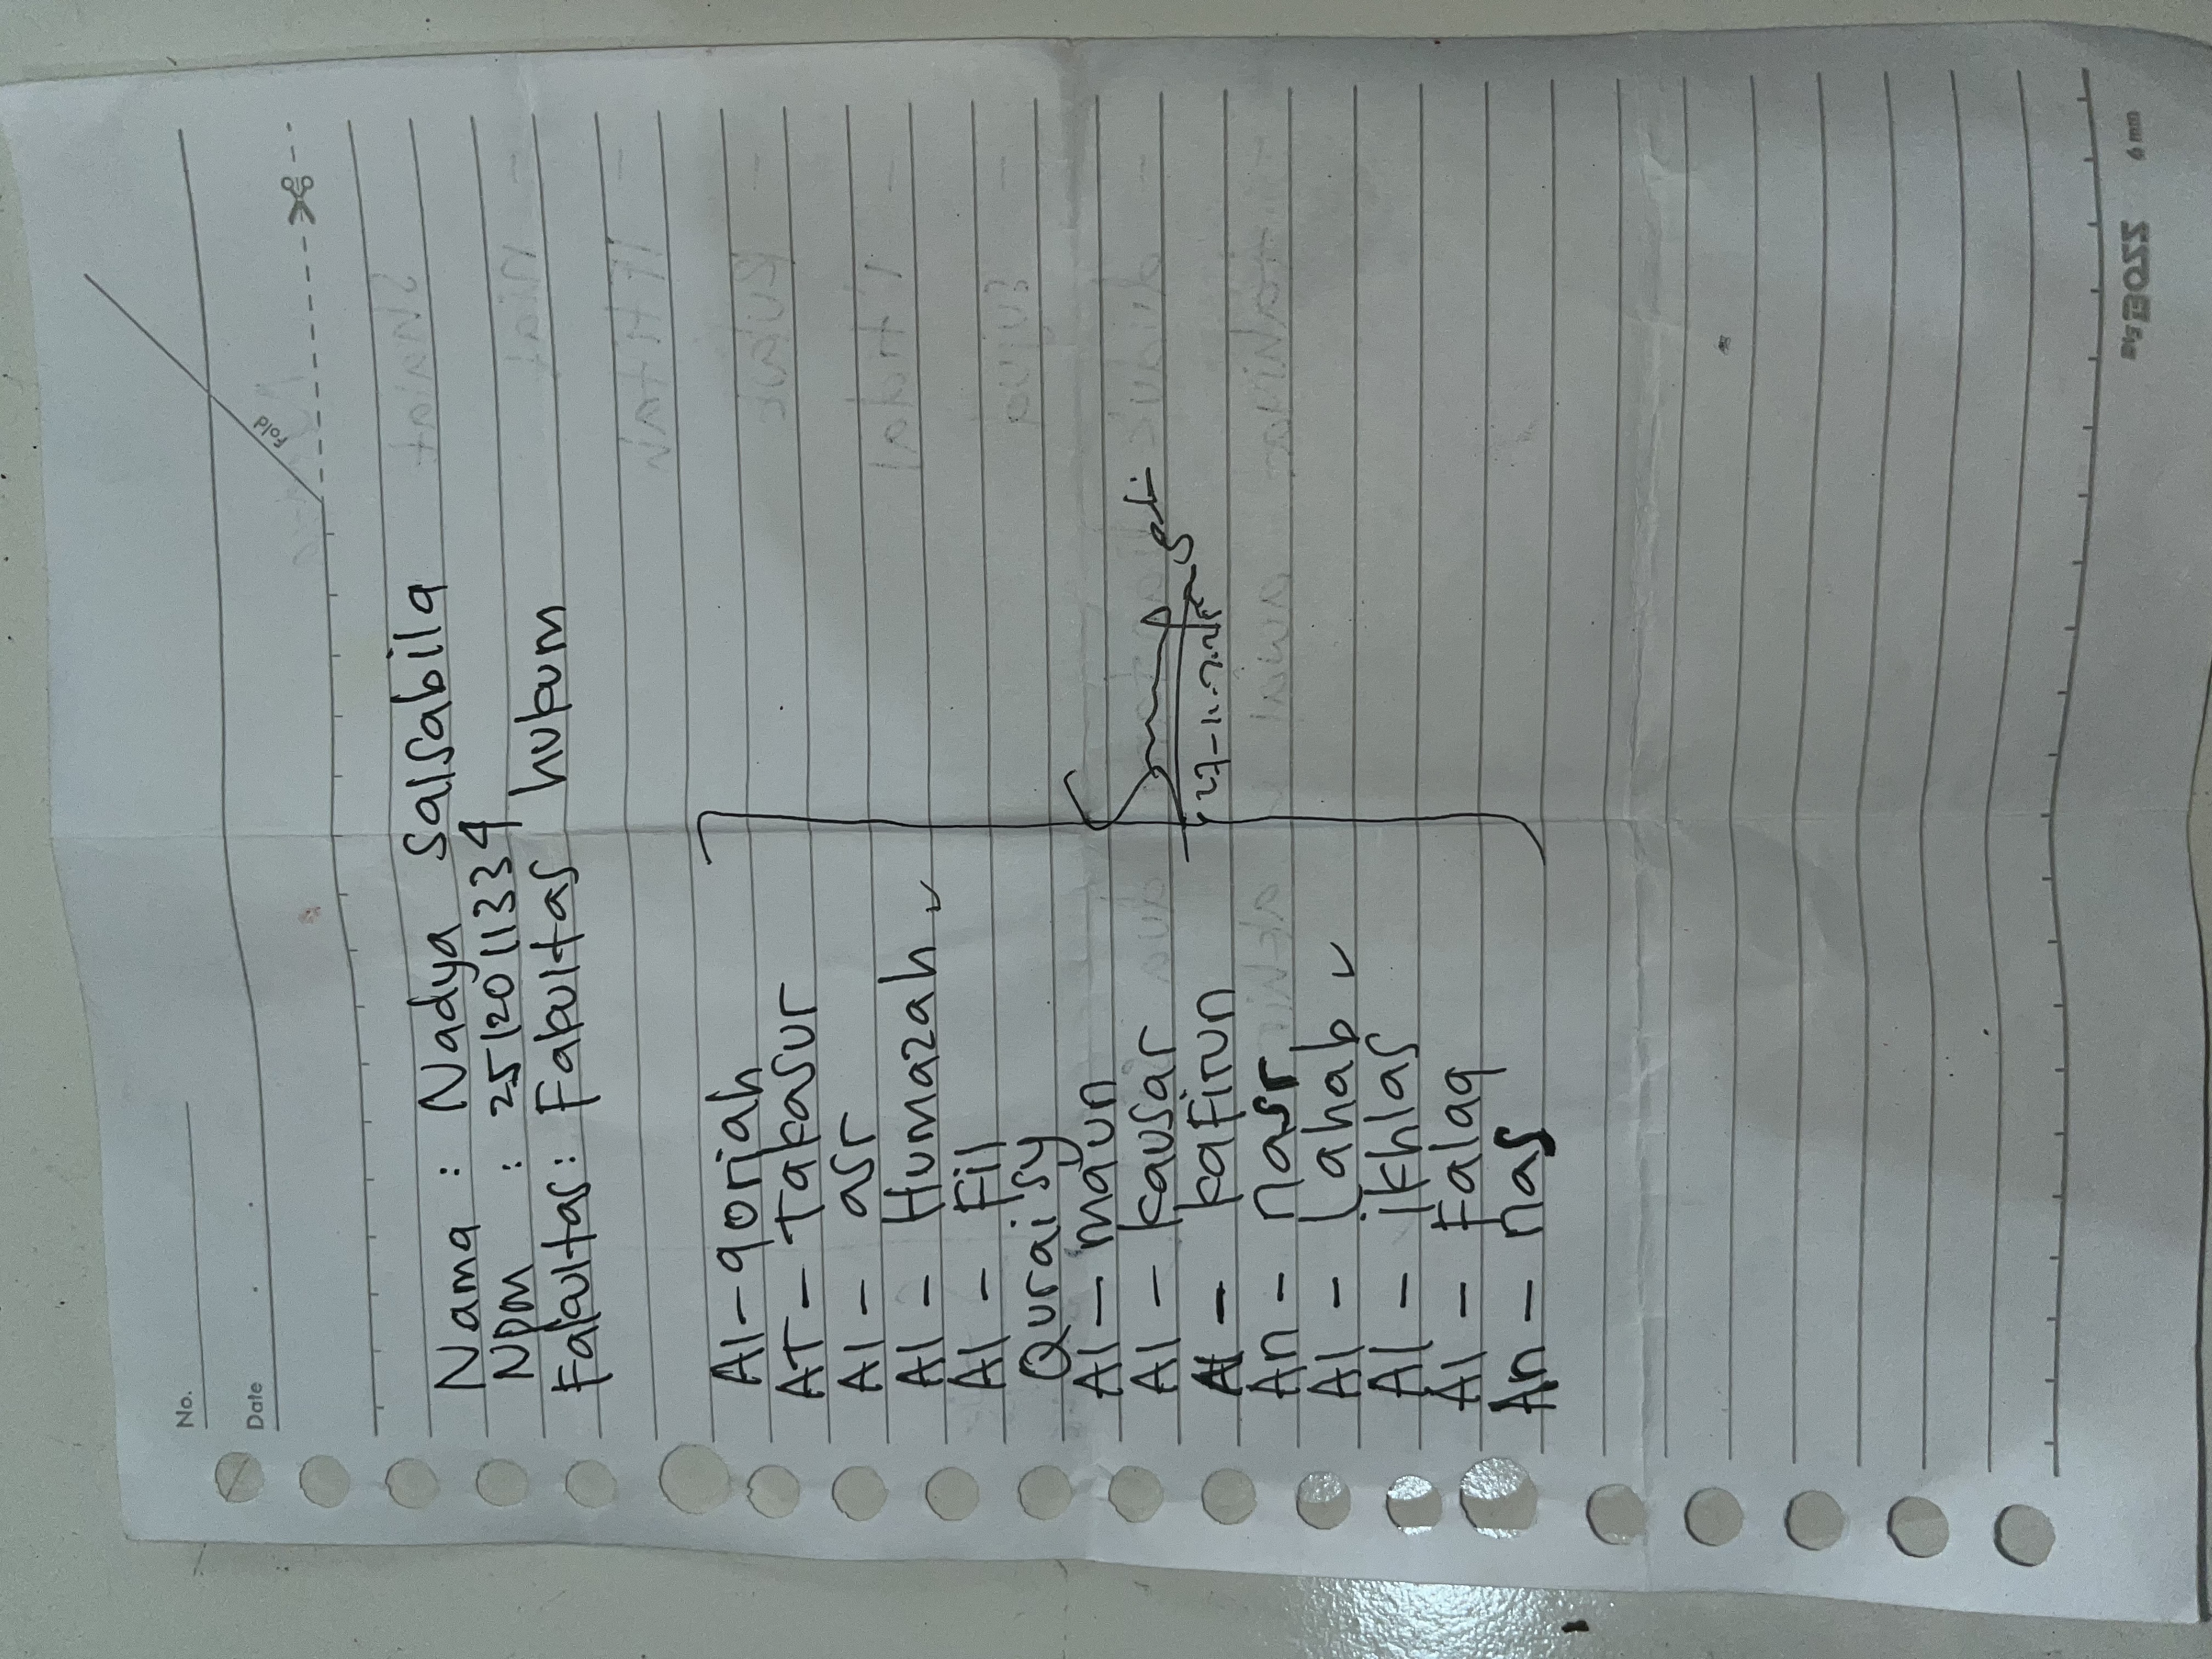 No.
Date
Fold
Nama : Nadya Salsabila
Npm : 2512011334
Fakultas : Fakultas hukum
Al-qoriah
AT-Takasur
Al - asr
Al - Humazah ✓
Al - Fil
Quraisy
Al - maun
Al - kausar
Al - kafirun
An - nasr
Al - Lahab ✓
Al - ikhlas
Al - Falaq
An - nas
6 mm